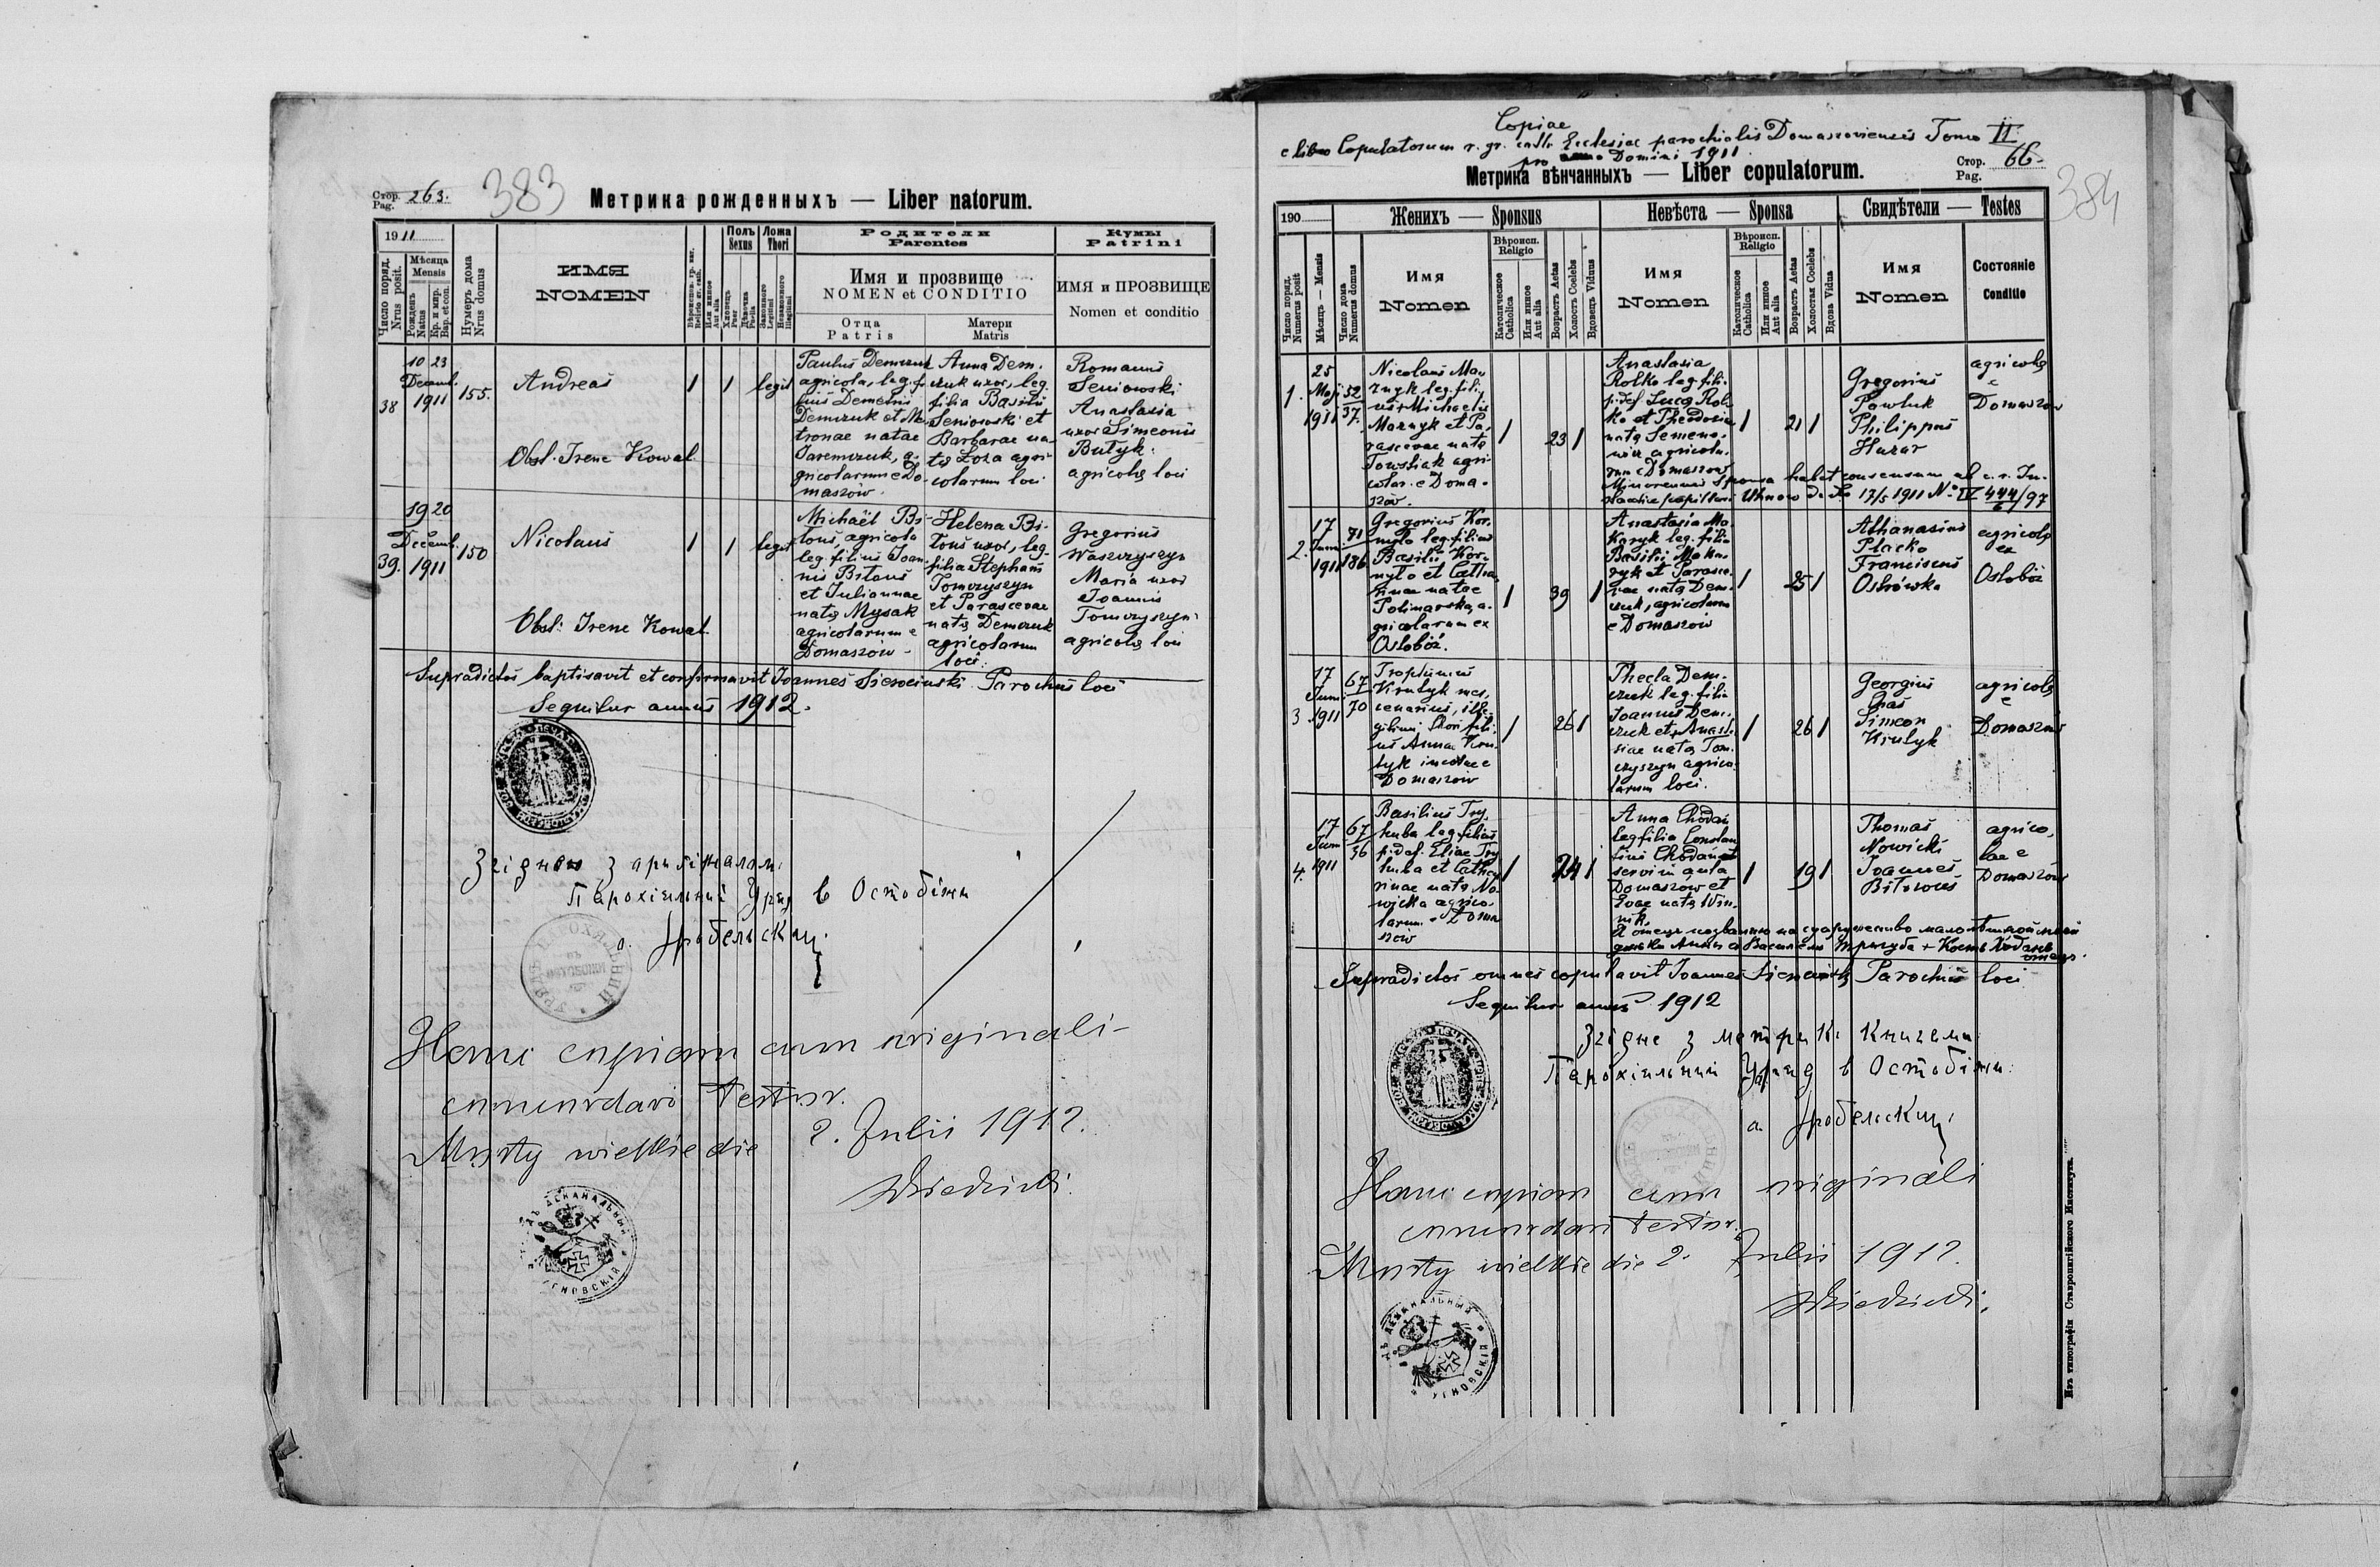 Стор.
Pag. 263.
383
Метрика рожденныхъ — Liber natorum.
1911
Число поряд.
Nrus posit.
Мѣсяца
Mensis
Рожденъ
Natus
Кр. и мѵр.
Bap. et con.
Нумеръ дома
Nrus domus
ИМЯ
NOMEN
Или инное
Aut alia
Полъ
Sexus
Хлопецъ
Puer
Дѣвочка
Puella
Ложа
Thori
Законного
Legitimi
Незаконного
Illegitimi
Родители
Parentes
Имя и прозвище
NOMEN et CONDITIO
Отца
Patris
Матери
Matris
Кумы
Patrini
ИМЯ и ПРОЗВИЩЕ
Nomen et conditio
38
10 23
Decemb.
1911
155.
Andreas
Obst. Irene Kowal
1
1
legit
Paulus Demczuk
agricola, leg. fi-
lius Demetrii
Demczuk et Ma-
tronae natae
Jaremczuk, a-
gricolarum e Do-
maszów.
Anna Dem-
czuk uxor, leg.
filia Basilii
Seniowski et
Barbarae na-
tae Łoza agri-
colarum loci
Romanus
Seniowski
Anastasia
uxor Simeonis
Butyk.
agricolae loci
39.
19 20
Decemb.
1911
150
Nicolaus
Obst. Irene Kowal
1
1
legit
Michaël Bi-
tous, agricola
leg. filius Joan-
nis Bitous
et Juliannae
natae Mysak
agricolarum e
Domaszow
Helena Bi-
tous uxor, leg.
filia Stephani
Tomczyszyn
et Parascevae
natae Demczuk
agricolarum
loci.
Gregorius
Waszczyszyn
Maria uxor
Joannis
Tomczyszyn
agricolae loci
Supradictos baptisavit et confirmavit Joannes Sieneinski Parochus loci
Sequitur annus 1912.
Згідно з ориґіналом:
Парохіяльний Уряд в Остобіжи
о. Гробельский
Hanc copiam cum originali
concordari testor.
Mosty wielkie die 2. Julii 1912.
Dziedzicki.
Copiae
e libro Copulatorum r. gr. cath. Ecclesiae parochialis Domaszoviensis Tomo II.
pro anno Domini 1911
Метрика вѣнчанныхъ — Liber copulatorum.
Стор.
Pag. 66.
384
190
Число поряд.
Numerus posit
Мѣсяць — Mensis
Число дома
Numerus domus
Женихъ — Sponsus
Имя
Nomen
Вѣроисп.
Religio
Католическое
Catholica
Или инное
Aut alia
Возрастъ Aetas
Холостъ Coelebs
Вдовецъ Viduus
Невѣста — Sponsa
Имя
Nomen
Вѣроисп.
Religio
Католическое
Catholica
Или инное
Aut alia
Возрастъ Aetas
Холостая Coelebs
Вдова Vidua
Свидѣтели — Testes
Имя
Nomen
Состоянie
Conditio
1.
25
Maji
1911
52
37.
Nicolaus Ma-
znyk leg. fili-
us + Michaelis
Maznyk et Pa-
rascevae natae
Towstiak agri-
colar. e Doma-
szów.
1
23
1
Anastasia
Rolko leg. fili-
p. def. Lucae Rol-
ko et Theodosiae
natae Semeno-
wicz agricola-
rum e Domaszow
1
21
1
Gregorius
Pawluk
Philippus
Huzar
agricolae
e
Domaszow
Minorennis sponsa habet consensum ab c. r. Ju-
dicio pupillari Uhnow de do 17/5 1911 No. IV 444/97
6
2.
17
Juni
1911
71
186
Gregorius Kor-
nylo leg. filius
Basilii Kor-
nylo et Catha-
rinae natae
Polinarska, a-
gricolarum ex
Ostobóż.
1
39
1
Anastasia Mo-
karyk leg. filia
Basilii Moka-
ryk et Parasce-
vae natae Dem-
czuk, agricolarum
e Domaszow
1
25
1
Athanasius
Placko
Franciscus
Ostrówka
agricolae
ex
Ostobóż
3
17
Juni
1911
67
70
Trophimus
Krutyk mer-
cenarius, ille-
gitimi thori fili-
us Annae Kru-
tyk incolae e
Domaszów
1
26
1
Thecla Dem-
czuk leg. filia
Joannis Dem-
czuk et + Anasta-
siae natae Tom-
czyszyn agrico-
larum loci.
1
26
1
Georgius
Hnas
Simeon
Krutyk
agricolae
e
Domaszow
4.
17
Juni
1911
67
36
Basilius Try-
huba leg. filius
p. def. Eliae Try
huba et Catha-
rinae natae No-
wicka agrico-
larum e Doma
szów
1
24
1
Anna Chodań
leg. filia Constan
tini Chodań et
servi in aula
Domaszow et
Evae natae Win-
nik.
1
19
1
Thomas
Nowicki
Joannes
Bitous
agrico-
lae e
Domaszow
Supradictos omnes copulavit Joannes Sieneinski Parochus loci
Sequitur annus 1912
Згідне з метрик. Книгами
Парохіяльний Уряд в Остобіжи:
о. Гробельский
Hanc copiam cum originali
concordari testor.
Mosty wielkie die 2. Julii 1912.
Dziedzicki.
Изъ типографіи Ставропигійского Института.